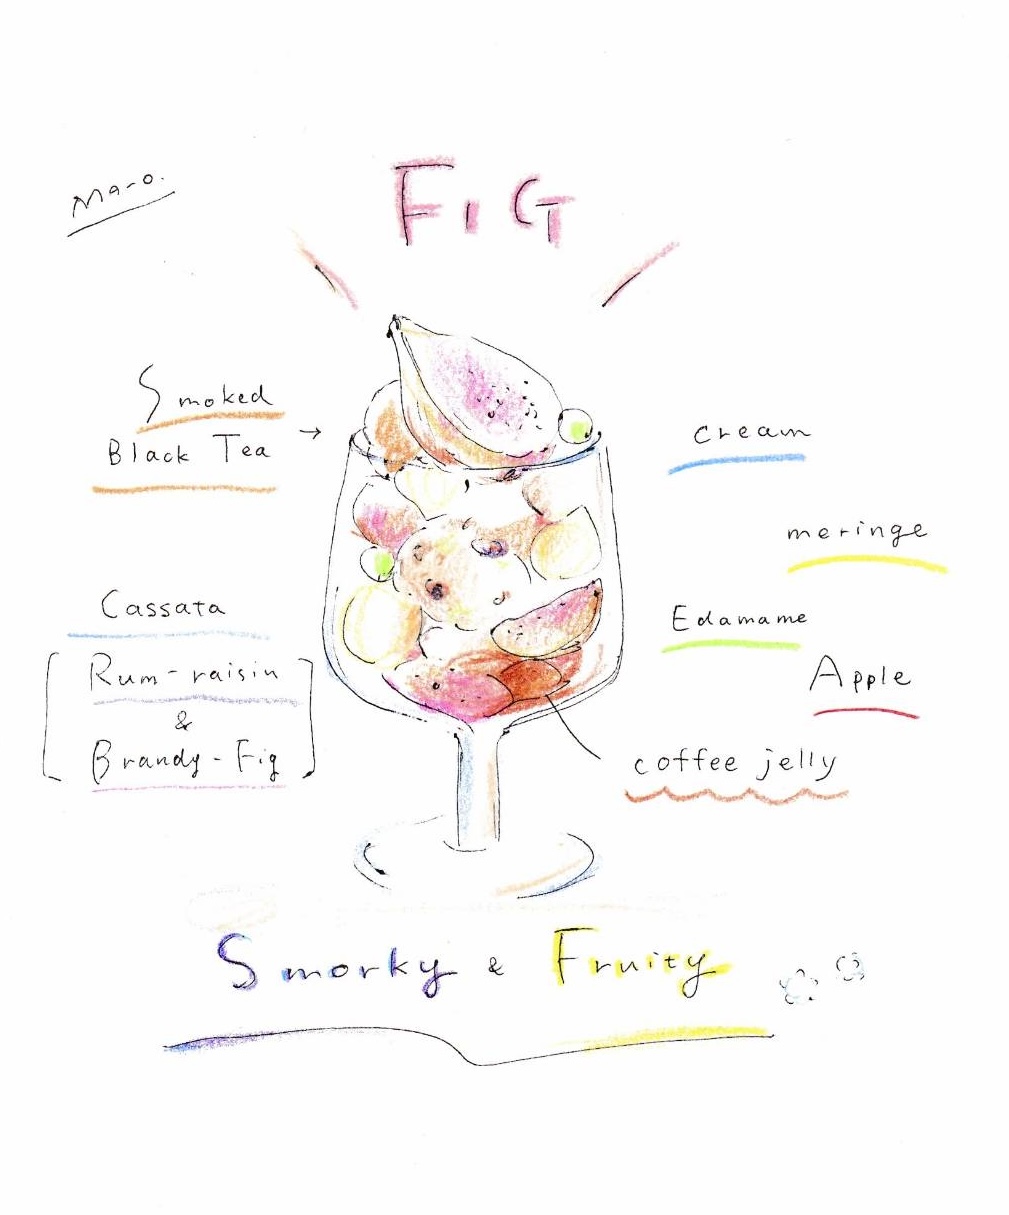 Maro.
FIG
Smoked
Black Tea →
cream
meringe
Cassata
[Rum-raisin
&
Brandy-Fig]
Edamame
Apple
coffee jelly
Smorky & Fruity